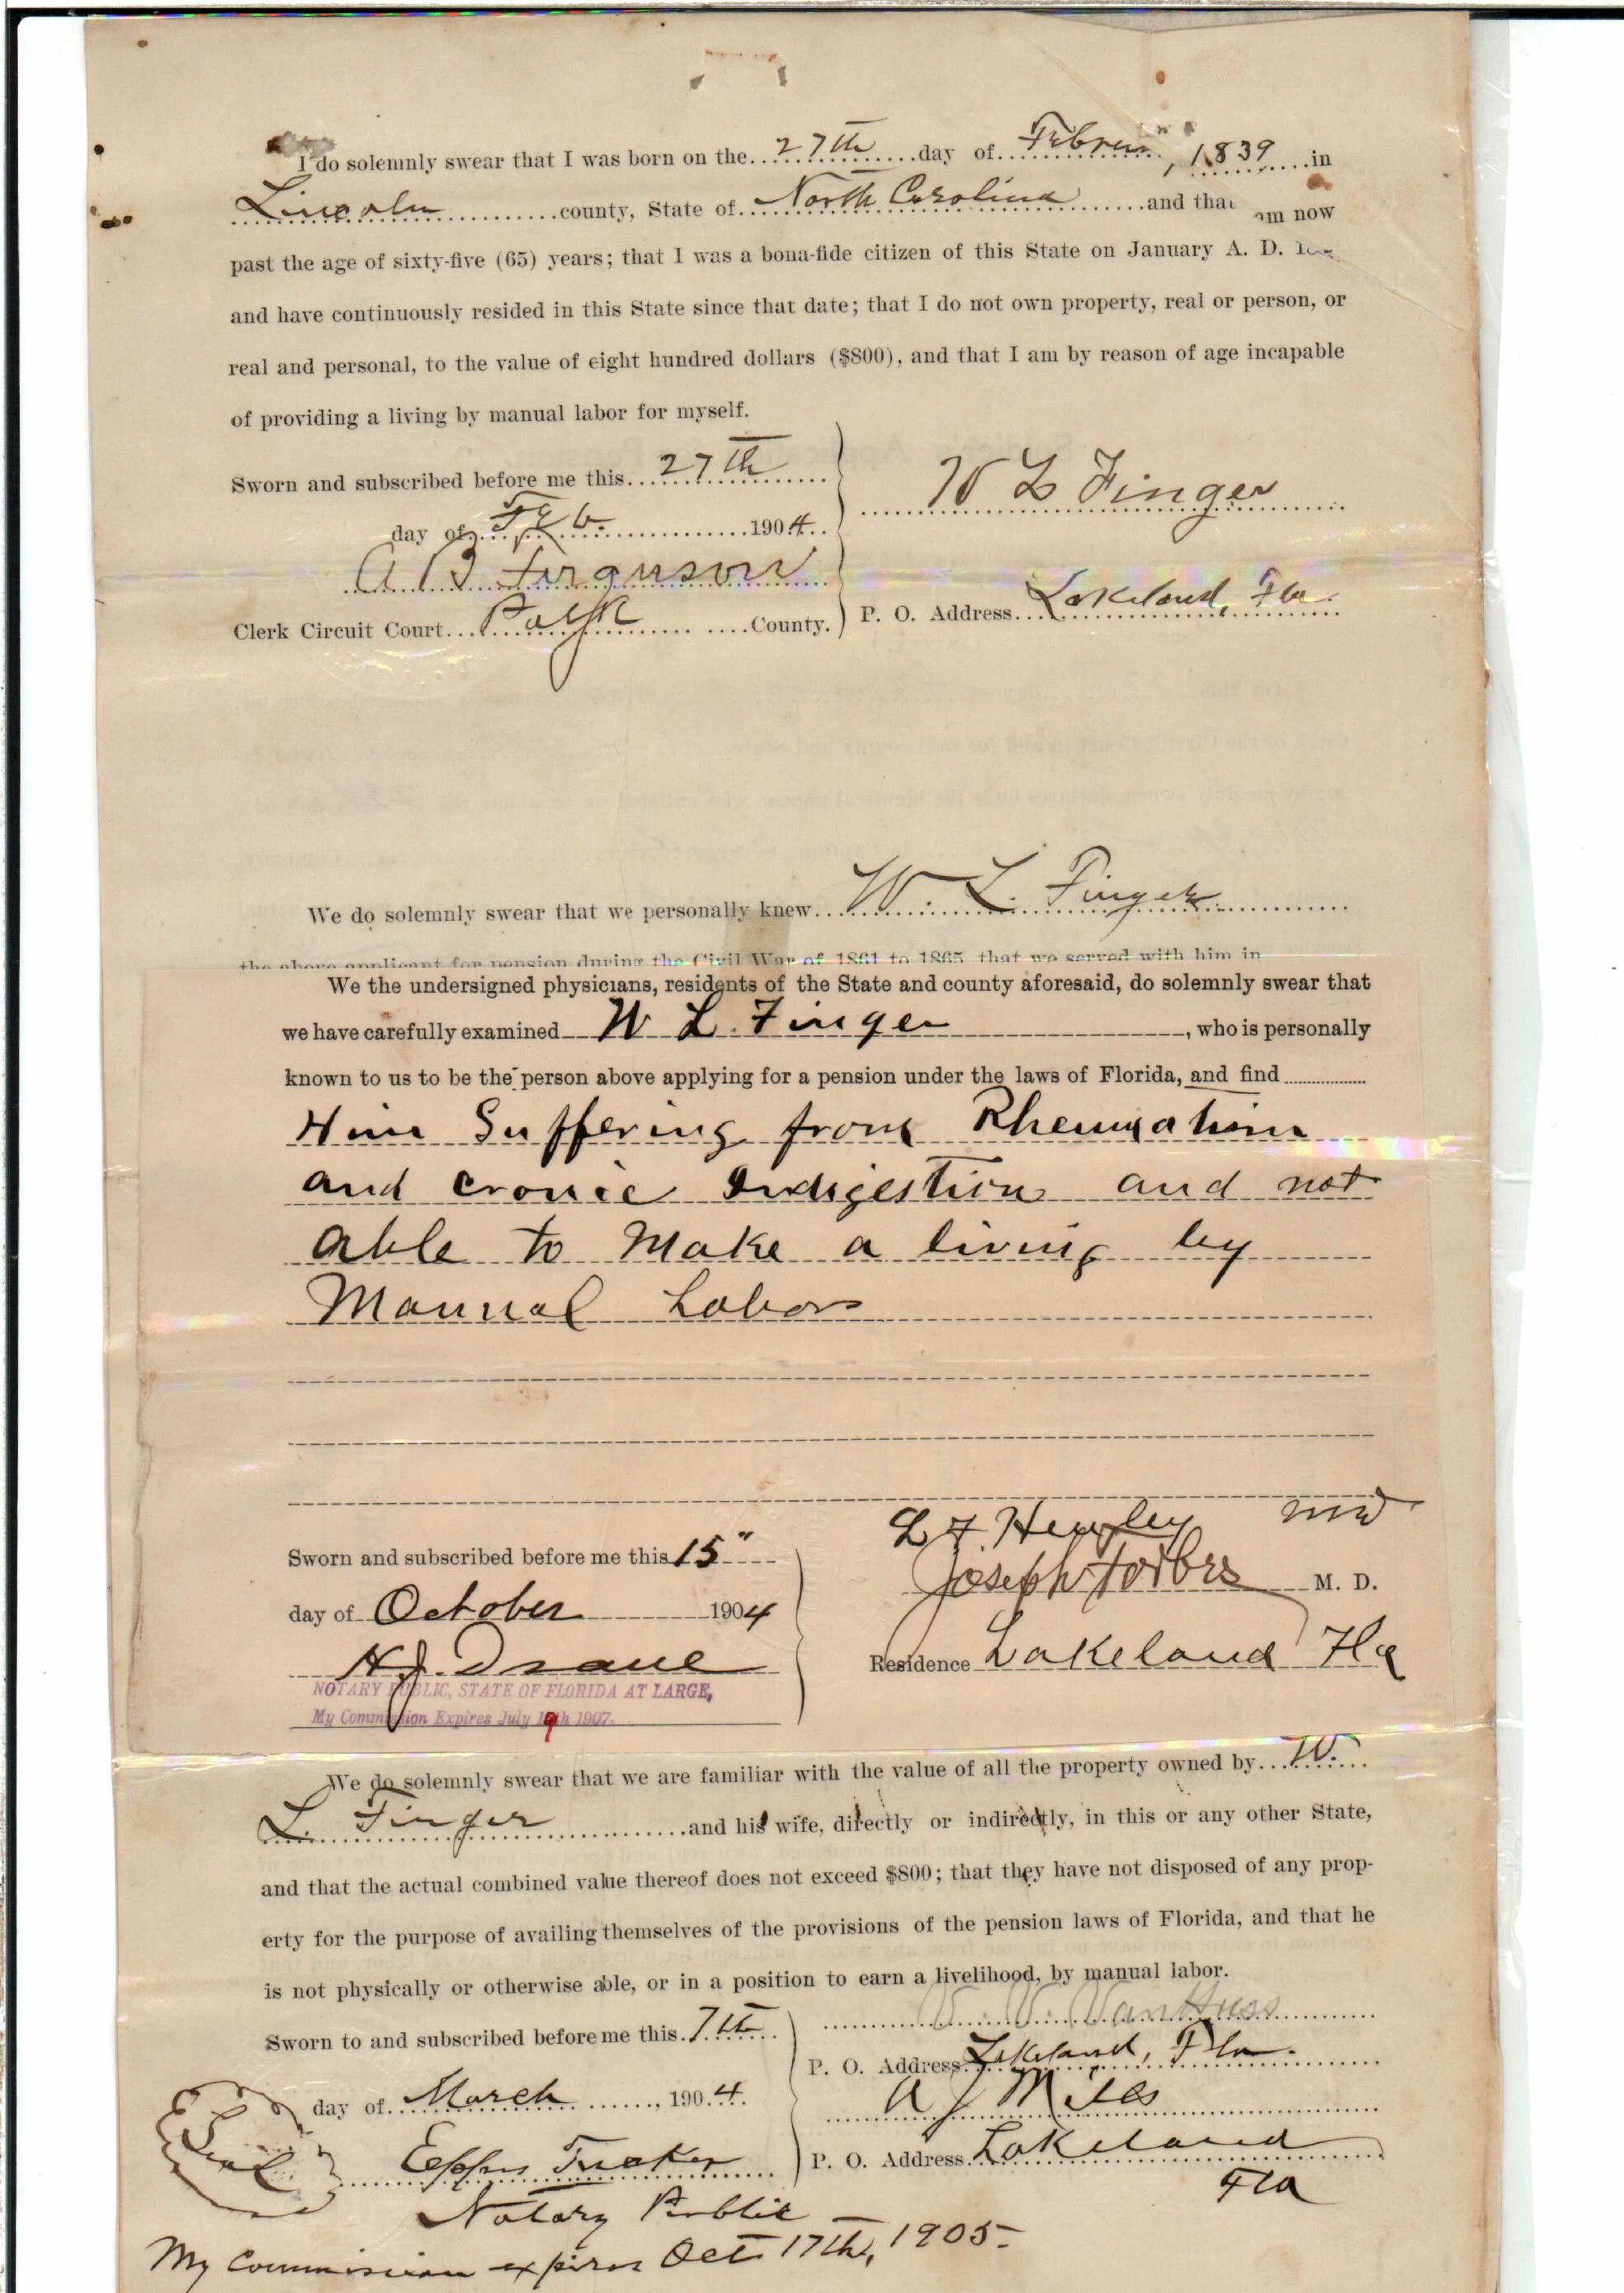 I do solemnly swear that I was born on the 27th day of Februa, 1839 in
Lincoln county, State of North Carolina and that am now
past the age of sixty-five (65) years; that I was a bona-fide citizen of this State on January A. D.
and have continuously resided in this State since that date; that I do not own property, real or person, or
real and personal, to the value of eight hundred dollars ($800), and that I am by reason of age incapable
of providing a living by manual labor for myself.
Sworn and subscribed before me this 27th
day of Feb. 1904
W L Finger
A B Ferguson
Clerk Circuit Court Polk County.
P. O. Address Lakeland, Fla.
We do solemnly swear that we personally knew W. L. Finger
the above applicant for pension during the Civil War of 1861 to 1865, that we served with him in
We the undersigned physicians, residents of the State and county aforesaid, do solemnly swear that
we have carefully examined W L. Finger, who is personally
known to us to be the person above applying for a pension under the laws of Florida, and find
Him Suffering from Rheumatism
and cronic Indigestion and not
able to Make a living by
Manual Labor
L F Henley MD
Joseph Forbes M. D.
Residence Lakeland Fla
Sworn and subscribed before me this 15"
day of October 1904
H. J. Drane
NOTARY PUBLIC, STATE OF FLORIDA AT LARGE,
My Commission Expires July 19th 1907.
We do solemnly swear that we are familiar with the value of all the property owned by W.
L. Finger and his wife, directly or indirectly, in this or any other State,
and that the actual combined value thereof does not exceed $800; that they have not disposed of any prop-
erty for the purpose of availing themselves of the provisions of the pension laws of Florida, and that he
is not physically or otherwise able, or in a position to earn a livelihood, by manual labor.
Sworn to and subscribed before me this 7th
day of March, 1904.
Van Huss
P. O. Address Lakeland, Fla.
A J Miles
P. O. Address Lakeland
Fla
Seal
Eppes Tucker
Notary Public
My Commission expires Oct 17th, 1905-